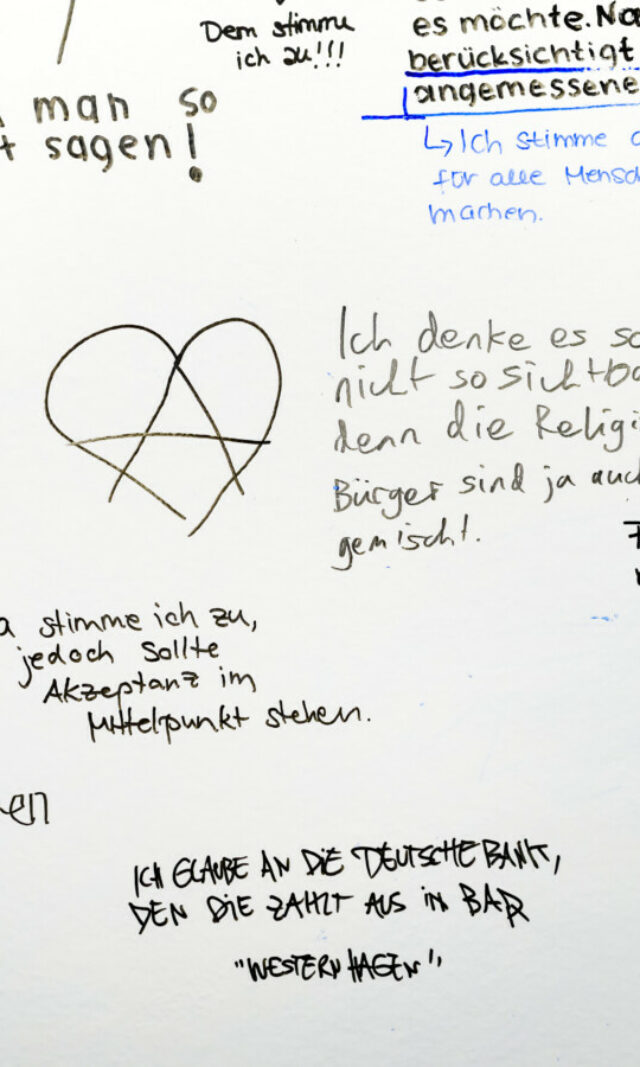 Dem stimme
ich zu!!!
es möchte.
berücksichtigt
angemessene
man so
sagen!
Ich stimme
für alle
machen.
Ich denke es
nicht so
denn die
Bürger sind ja
gemischt.
stimme ich zu,
jedoch sollte
Akzeptanz im
Mittelpunkt stehen.
ICH GLAUBE AN DIE DEUTSCHE BANK,
DEN DIE ZAHLT AUS IN BAR
"WESTERNHAGEN"